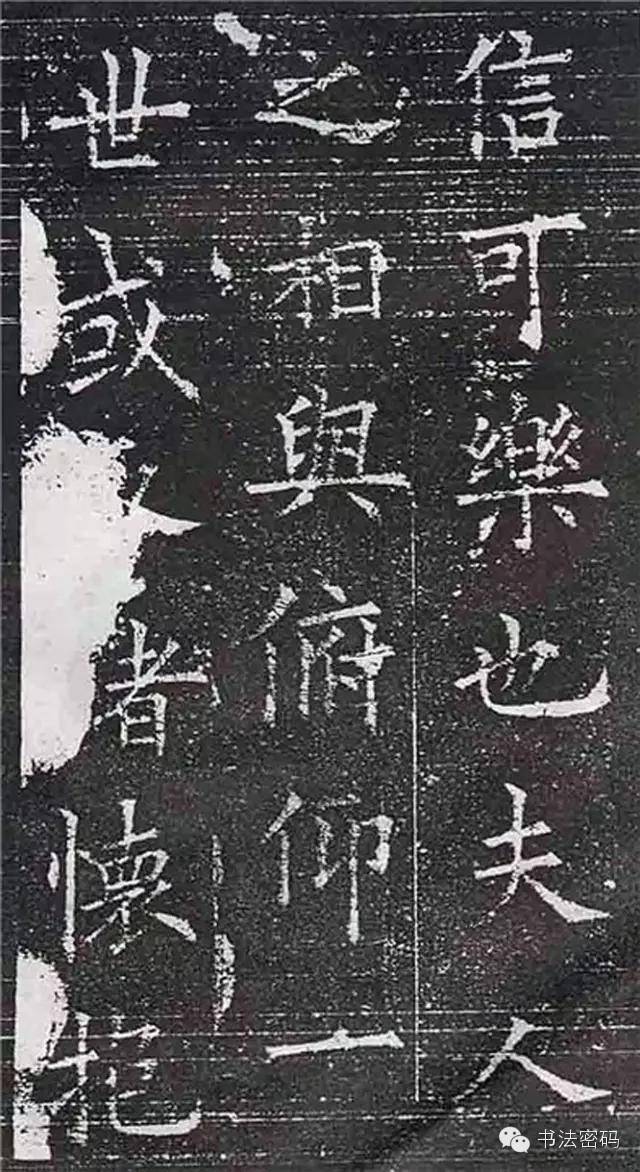 信可樂也夫人
之相與俯仰一
世或者懷抱
书法密码